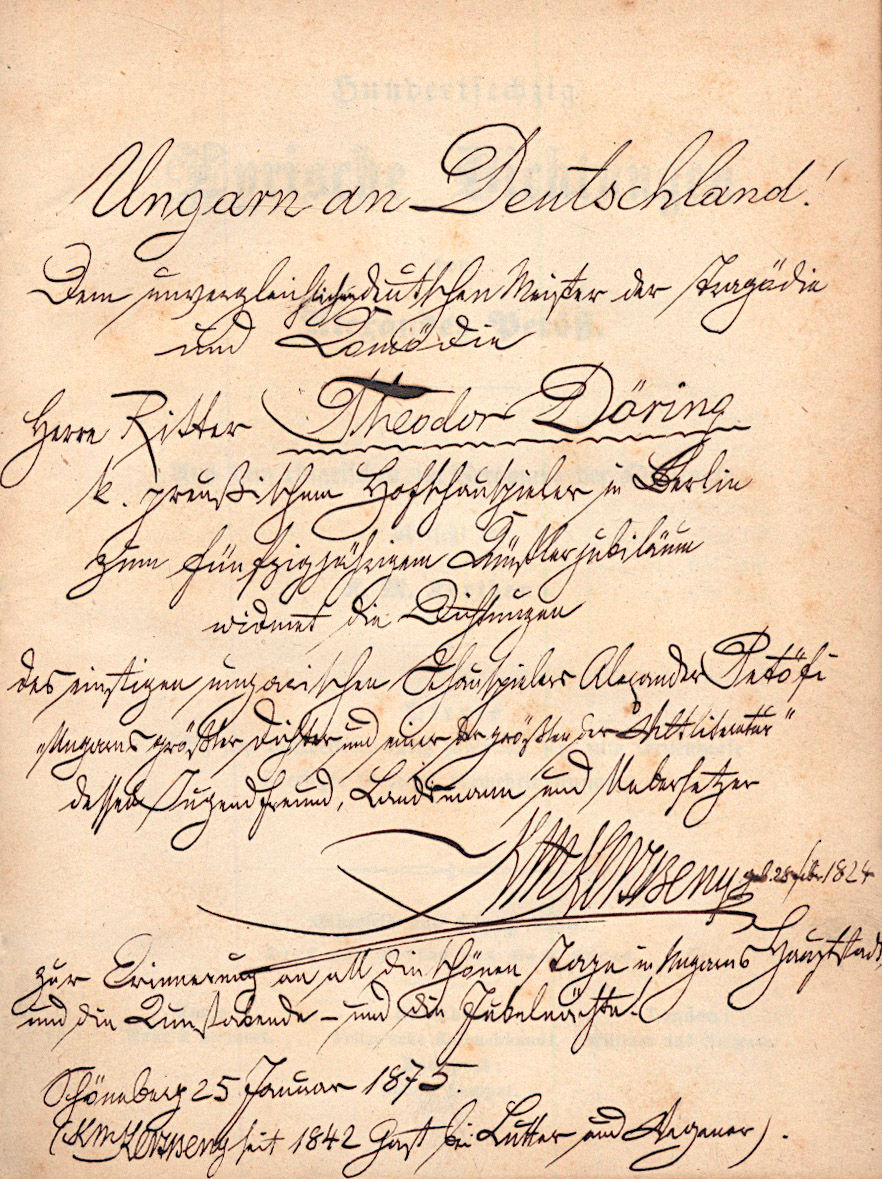 Ungarn an Deutschland!
Dem unvergleichlichen deutschen Meister der Tragödie
und Comödie
Herrn Ritter Theodor Döring
k. preußischem Hofschauspieler in Berlin
zum fünfzigjährigem Künstlerjubiläum
widmet die Dichtungen
des einstigen ungarischen Schauspielers Alexander Petőfi
„Ungarns größter Dichter und einer der größten der Weltliteratur“
dessen Jugendfreund, Landsmann und Uebersetzer
KMKertbeny geb. 28 febr 1824
zur Erinnerung an all die schönen Tage in Ungarns Hauptstadt,
und die Kunstabende – und die Jubelnächte!
Schöneberg 25 Januar 1875.
(KMKertbeny seit 1842 Gast bei Lutter und Wegener).